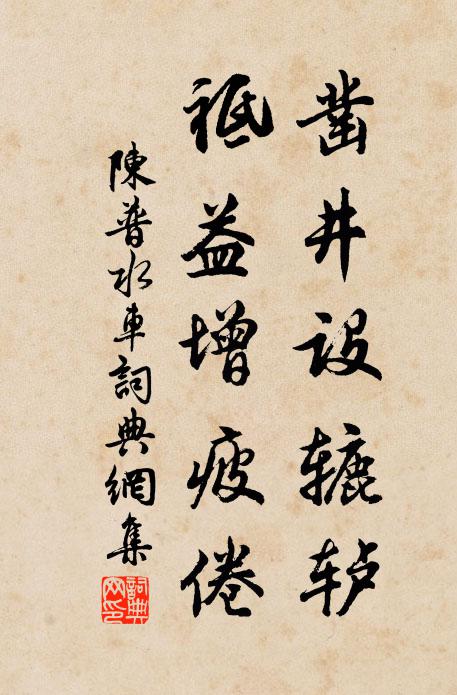 凿井设辘轳
祗益增疲倦
陳普水車詞典網集
詞典网印